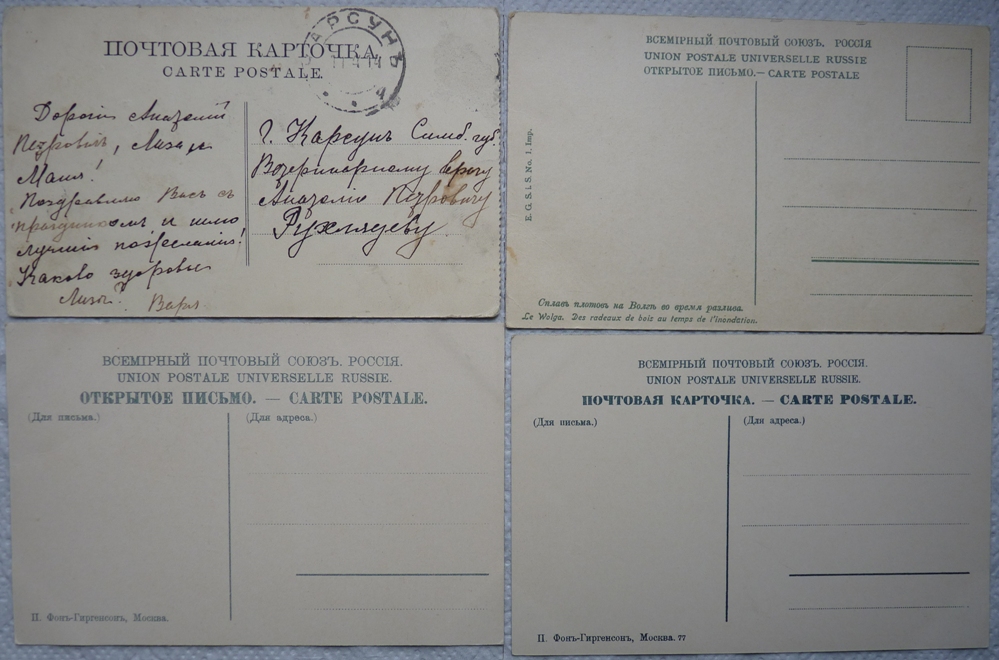 ПОЧТОВАЯ КАРТОЧКА.
CARTE POSTALE.
АРСУНЪ
11 4 14
Дорогiе Анатолiй
Петровичъ, Лиза и
Маня!
Поздравляю Васъ съ
праздникомъ и шлю
лучшiя пожеланiя!
Каково здоровье
Лизы? Варя.
г. Карсунъ Симб. губ.
Ветеринарному врачу
Анатолiю Петровичу
Рухлядеву.
ВСЕМIРНЫЙ ПОЧТОВЫЙ СОЮЗЪ. РОССIЯ
UNION POSTALE UNIVERSELLE RUSSIE
ОТКРЫТОЕ ПИСЬМО.— CARTE POSTALE
E. G. S. i. S. No. 1. Imp.
Сплавъ плотовъ на Волгѣ во время разлива.
Le Wolga. Des radeaux de boiz au temps de l'inondation.
ВСЕМIРНЫЙ ПОЧТОВЫЙ СОЮЗЪ. РОССIЯ.
UNION POSTALE UNIVERSELLE RUSSIE.
ОТКРЫТОЕ ПИСЬМО. — CARTE POSTALE.
(Для письма.)
(Для адреса.)
П. Фонъ-Гиргенсонъ, Москва.
ВСЕМIРНЫЙ ПОЧТОВЫЙ СОЮЗЪ. РОССIЯ.
UNION POSTALE UNIVERSELLE RUSSIE.
ПОЧТОВАЯ КАРТОЧКА. — CARTE POSTALE.
(Для письма.)
(Для адреса.)
П. Фонъ-Гиргенсонъ, Москва. 77